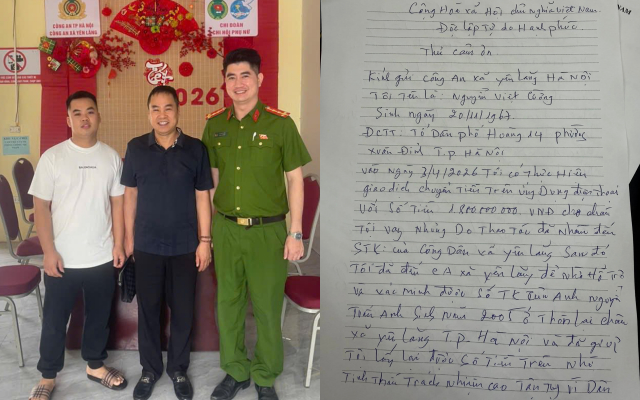 CÔNG AN TP HÀ NỘI
CÔNG AN XÃ YÊN LÃNG
CHI ĐOÀN
CHI HỘI PHỤ NỮ
Tết
2026
Cộng Hoà Xã Hội chủ nghĩa Việt Nam
Độc lập Tự do Hạnh phúc
Thư cảm ơn
Kính gửi Công An xã yên lãng Hà Nội
Tôi Tên là: Nguyễn Việt Cường
Sinh ngày 20/11/1967
ĐCTT: Tổ Dân phố Hoàng 14 phường
xuân Đỉnh T.p Hà Nội
vào Ngày 3/4/2026 Tôi có Thực Hiện
giao dịch chuyển Tiền Trên ứng Dụng điện thoại
với Số Tiền 1.800.000.000 VND cho
Tôi vay Nhưng Do Thao Tác đã Nhầm đến
STK: của Công Dân xã yên lãng Sau đó
Tôi đã đến CA xã yên lãng để Nhờ Hỗ Trợ
và xác minh được Số TK Của Anh Nguyễn
Tiến Anh Sinh Năm 2005 ở Thôn Lai Châu
xã yên lãng T.p Hà Nội và đã
Tôi lấy lại được Số Tiền Trên Nhờ
Tinh Thần Trách Nhiệm cao Tận Tụy vì Dân